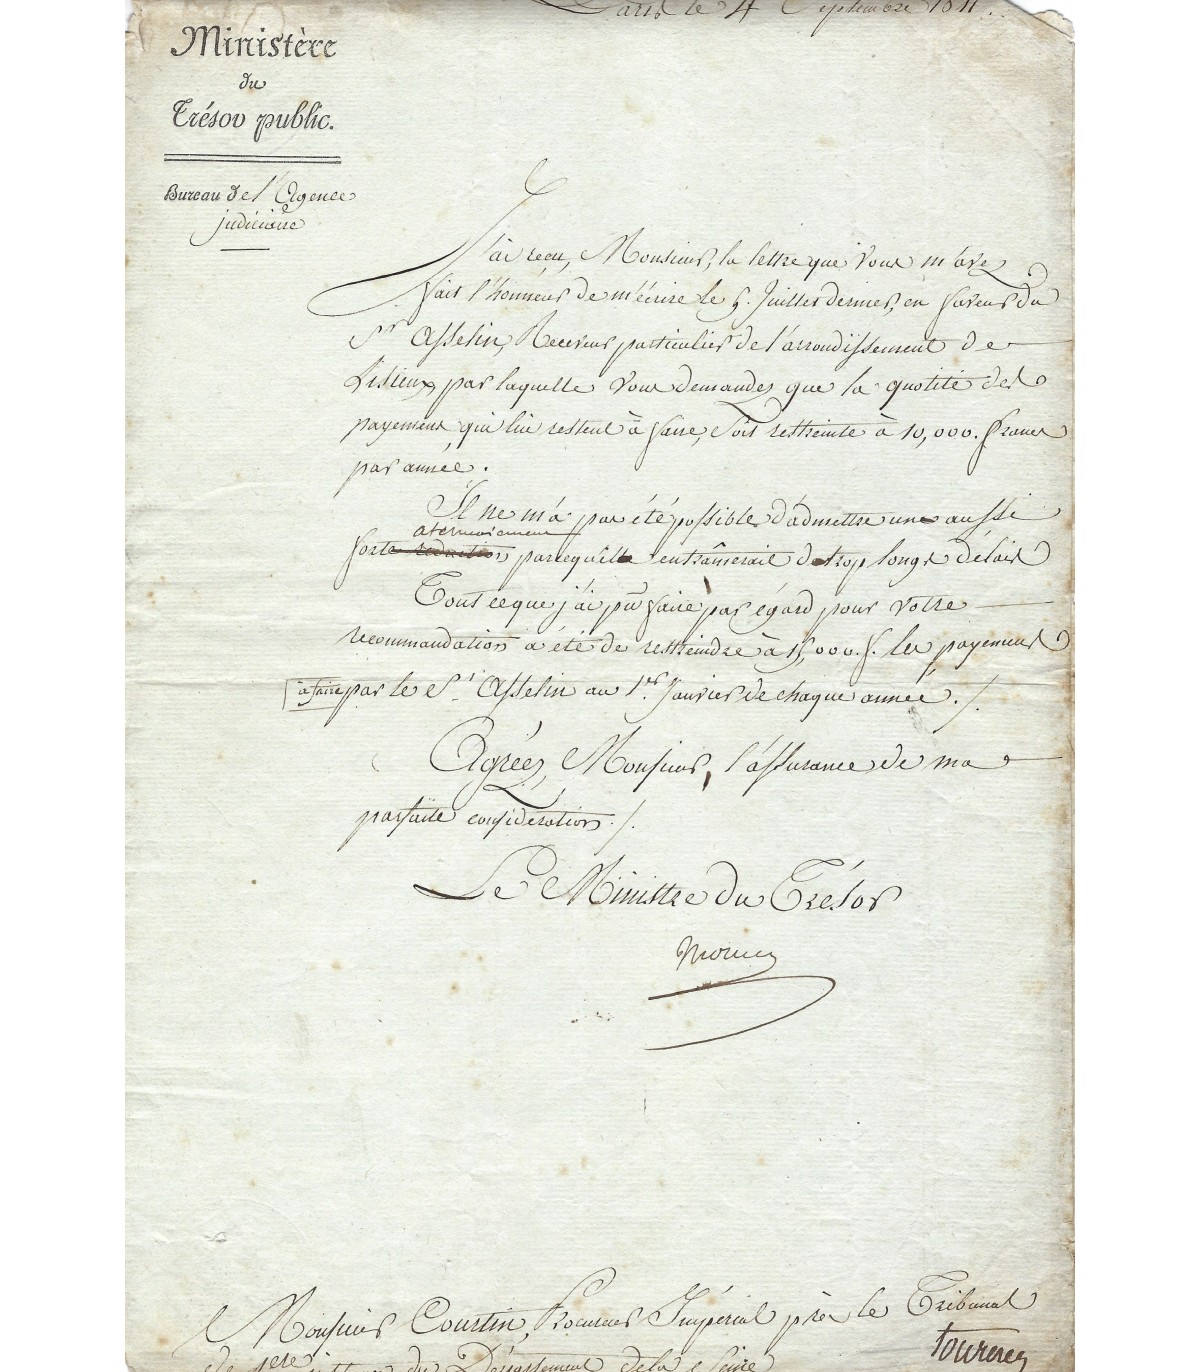 Paris le 4 Septembre 1811.
Ministère
du
Trésor public.
Bureau de l'Agence
judiciaire
J'ai recu, Monsieur, la lettre que vous m'avez
fait l'honneur de m'écrire le 5. Juillet dernier, en faveur du
Sr. Asselin, Receveur particulier de l'arrondissement de
Lisieux par laquelle vous demandez que la quotité des
payemens qui lui restent à faire, soit restreinte à 10,000. francs
par année.
Il ne m'a pas été possible d'admettre un aussi
atermoiement
fort reduction parcequ'il entrâinerait de trop longs délais
Tout ceque j'ai pu faire par égard pour votre
recommandation a été de restreindre à 15,000. f. les payemens
à faire par le Sr. Asselin au 1er. Janvier de chaque année ./.
Agréez, Monsieur, l'assurance de ma
parfaite consideration ./.
Le Ministre du Trésor
Mollien
Monsieur Courtin, Procureur Impérial près le Tribunal
de 1ere du Département de la Seine